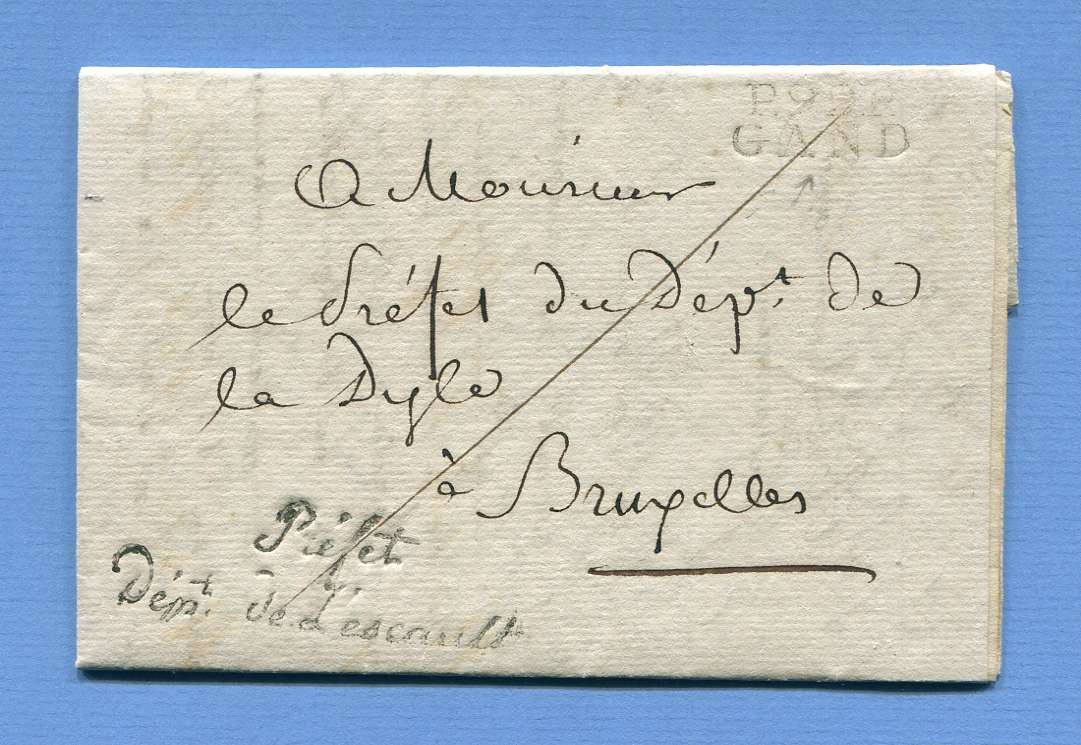 P.92.P.
GAND
A Monsieur
le Préfet du Dépt. de
la Dyle
à Bruxelles
Préfet
Dépt. de L'escault